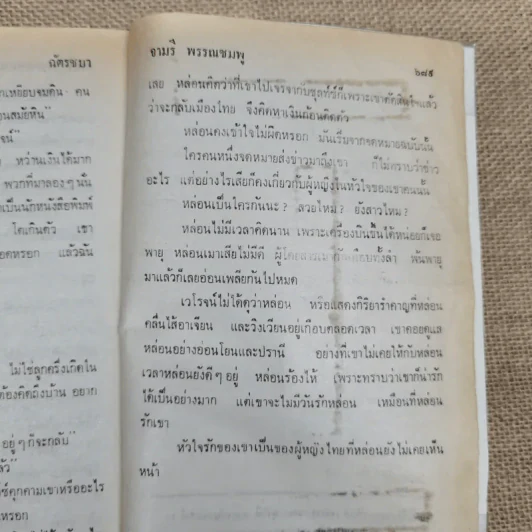 ฉัตรชบา
กเหยียบจมดิน คน
อนสมัยหิน"
จน์"
หว่านเงินได้มาก
พวกที่มาลองๆ นั้น
เป็นนักหนังสือพิมพ์
โตเกินตัว เขา
อดหรอก แล้วฉัน
ไม่ใช่ลูกครึ่งเกิดใน
ต้องคิดถึงบ้าน อยาก
อยู่ๆ ก็จะกลับ"
ล้ว"
ซ์คุกคามเขาหรืออะไร
หรอก
จามรี พรรณชมพู
๖๘๕
เลย หล่อนคิดว่าที่เขาไปเจรจากับชุลท์ซ์ก็เพราะเขาตัดสินใจแล้ว
ว่าจะกลับเมืองไทย จึงคิดหาเงินก้อนติดตัว
หล่อนคงเข้าใจไม่ผิดหรอก มันเริ่มจากจดหมายฉบับนั้น
ใครคนหนึ่งจดหมายส่งข่าวมาถึงเขา ก็ไม่ทราบว่าข่าว
อะไร แต่อย่างไรเสียก็คงเกี่ยวกับผู้หญิงในหัวใจของเขาคนนั้น
หล่อนเป็นใครกันนะ? สวยไหม? ยังสาวไหม?
หล่อนไม่มีเวลาคิดนาน เพราะเครื่องบินขึ้นได้หน่อยก็เจอ
พายุ หล่อนเมาเสียไม่มีดี ผู้โดยสารเมากันเกือบทั้งลำ พ้นพายุ
มาแล้วก็เลยอ่อนเพลียกันไปหมด
เวโรจน์ไม่ได้ดุว่าหล่อน หรือแสดงกิริยารำคาญที่หล่อน
คลื่นไส้อาเจียน และวิงเวียนอยู่เกือบตลอดเวลา เขาคอยดูแล
หล่อนอย่างอ่อนโยนและปรานี อย่างที่เขาไม่เคยให้กับหล่อน
เวลาหล่อนยังดีๆ อยู่ หล่อนร้องไห้ เพราะทราบว่าเขาก็น่ารัก
ได้เป็นอย่างมาก แต่เขาจะไม่มีวันรักหล่อน เหมือนที่หล่อน
รักเขา
หัวใจรักของเขาเป็นของผู้หญิงไทยที่หล่อนยังไม่เคยเห็น
หน้า